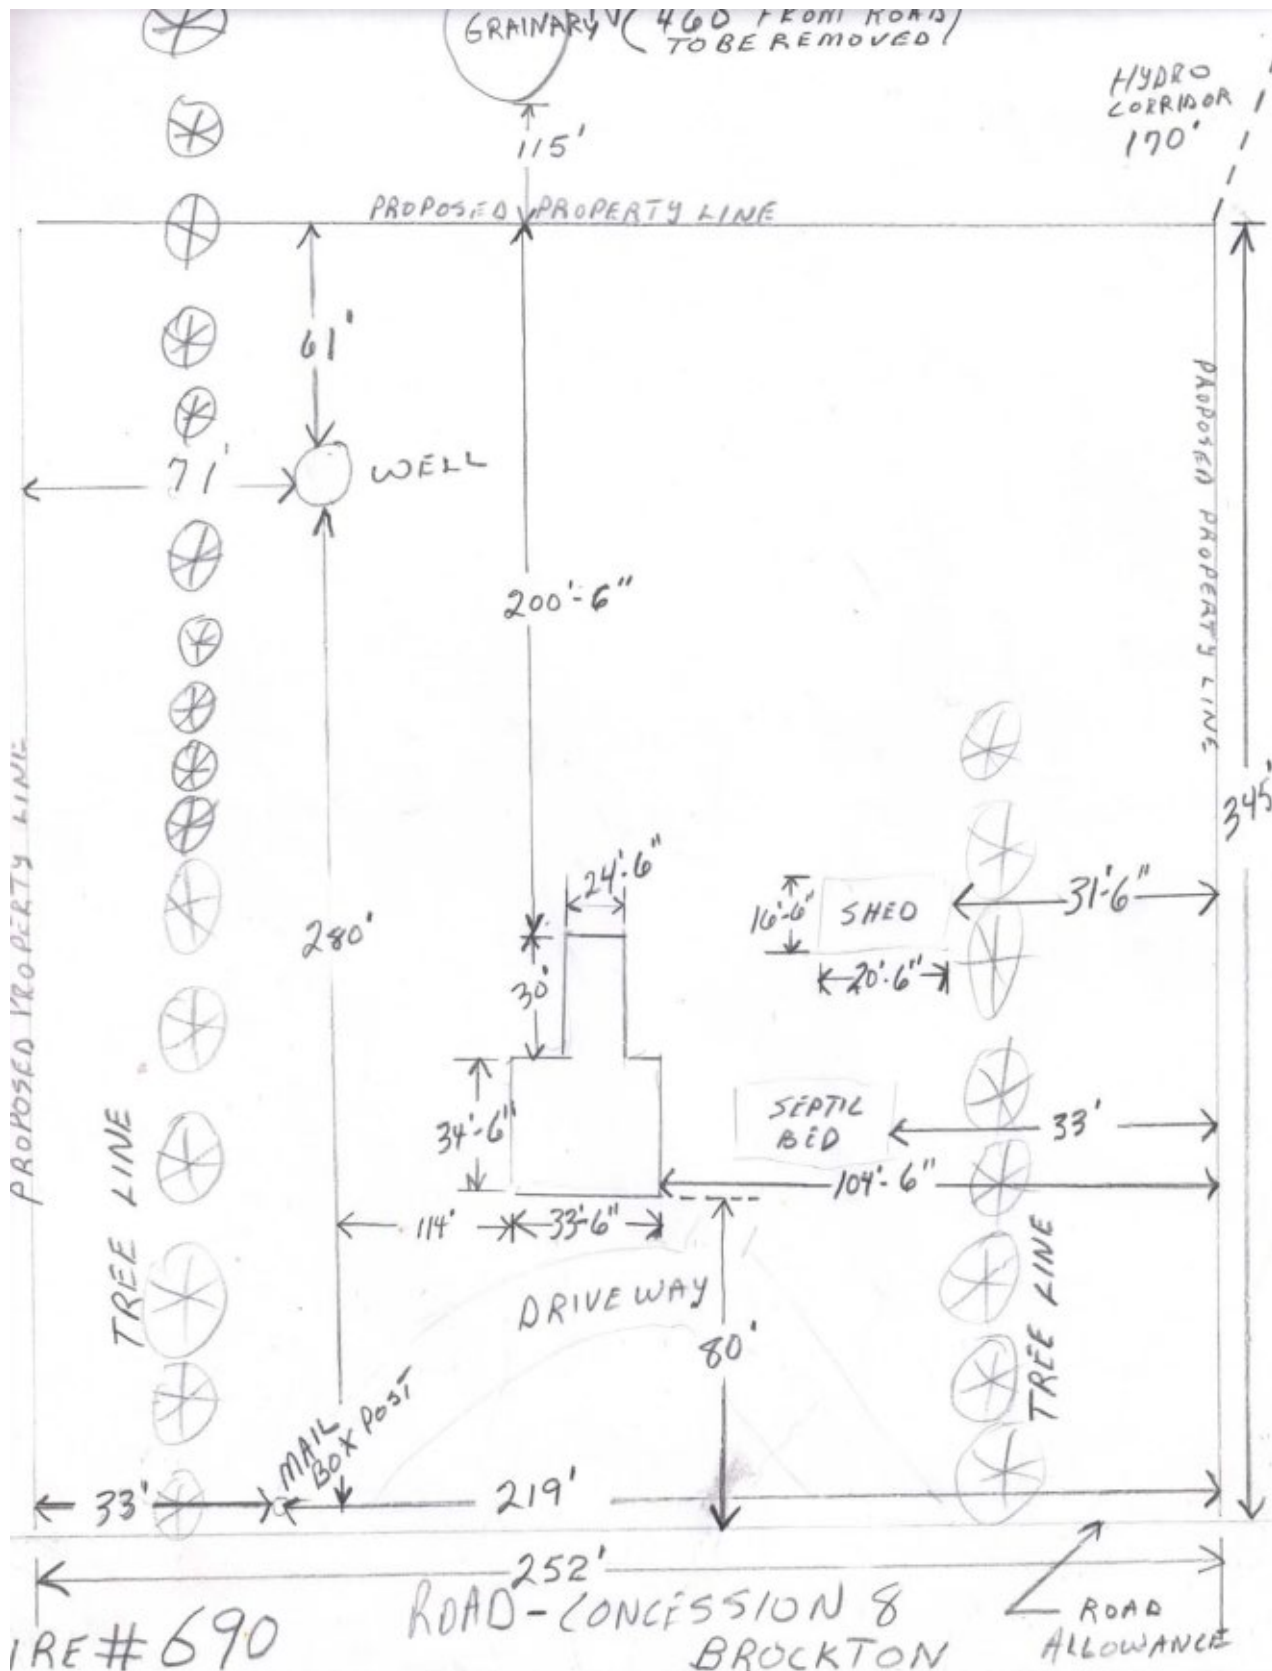 GRAINARY (460 FROM ROAD
TO BE REMOVED)
HYDRO
CORRIDOR
170'
115'
PROPOSED PROPERTY LINE
61'
71'
WELL
200'-6"
PROPOSED PROPERTY LINE
345'
PROPOSED PROPERTY LINE
24'-6"
280'
30'
16'-6"
SHED
31'-6"
20'-6"
34'-6"
SEPTIC
BED
33'
104'-6"
114'
33'-6"
TREE LINE
DRIVEWAY
80'
TREE LINE
MAIL
BOX POST
33'
219'
252'
ROAD-CONCESSION 8
BROCKTON
ROAD
ALLOWANCE
IRE# 690